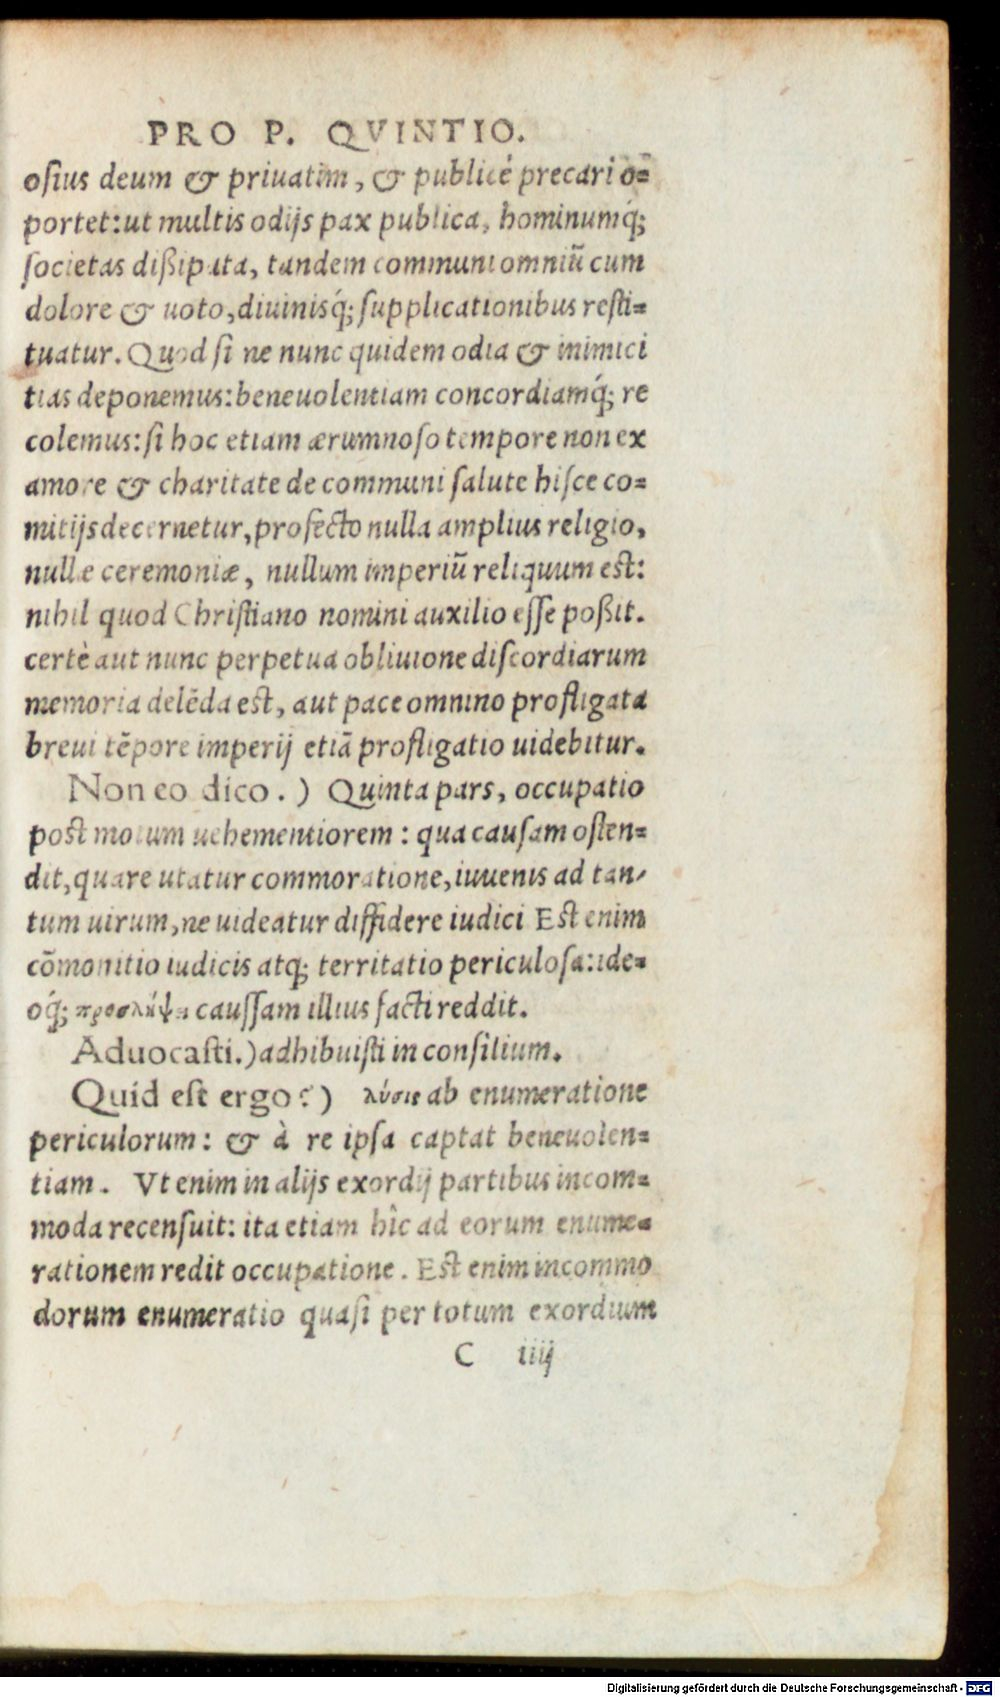 PRO P. QVINTIO.
osius deum & priuatim, & publicè precari o=
portet: ut multis odijs pax publica, hominumq́;
societas dißipata, tandem communi omniū cum
dolore & uoto, diuinisq́; supplicationibus resti=
tuatur. Quod si ne nunc quidem odia & inimici
tias deponemus: beneuolentiam concordiamq́; re
colemus: si hoc etiam ærumnoso tempore non ex
amore & charitate de communi salute hisce co=
mitijs decernetur, profecto nulla amplius religio,
nullæ ceremoniæ, nullum imperiū reliquum est:
nihil quod Christiano nomini auxilio esse poßit.
certè aut nunc perpetua obliuione discordiarum
memoria delēda est, aut pace omnino profligata
breui tēpore imperij etiā profligatio uidebitur.
Non eo dico.) Quinta pars, occupatio
post motum uehementiorem: qua causam osten=
dit, quare utatur commoratione, iuuenis ad tan/
tum uirum, ne uideatur diffidere iudici Est enim
cōmonitio iudicis atq; territatio periculosa: ide=
oq́; caussam illius facti reddit.
Aduocasti.) adhibuisti in consilium.
Quid est ergo?) λύσις ab enumeratione
periculorum: & à re ipsa captat beneuolen=
tiam. Vt enim in alijs exordij partibus incom=
moda recensuit: ita etiam hîc ad eorum enume=
rationem redit occupatione. Est enim incommo
dorum enumeratio quasi per totum exordium
C iiij
Digitalisierung gefördert durch die Deutsche Forschungsgemeinschaft - DFG